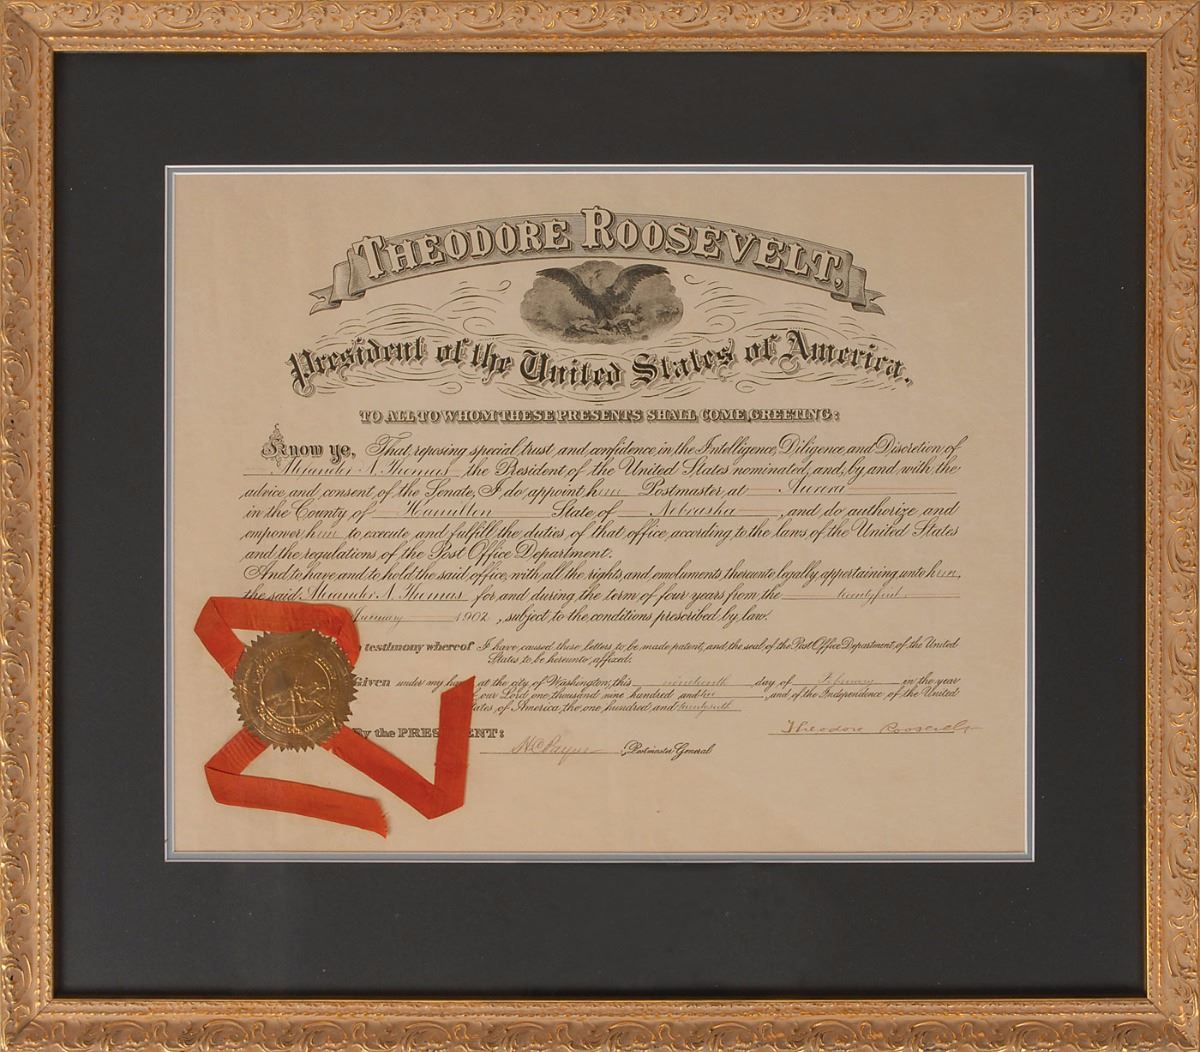 THEODORE ROOSEVELT,
President of the United States of America.
TO ALL TO WHOM THESE PRESENTS SHALL COME, GREETING:
Know ye, That, reposing special trust and confidence in the Intelligence, Diligence and Discretion of
Alexander N. Thomas, the President of the United States nominated, and, by and with the
advice and consent of the Senate, I do appoint him Postmaster at Aurora
in the County of Hamilton State of Nebraska, and do authorize and
empower him to execute and fulfill the duties of that office, according to the laws of the United States
and the regulations of the Post Office Department.
And to have and to hold the said office, with all the rights and emoluments thereunto legally appertaining unto him,
the said Alexander N. Thomas for and during the term of four years from the twenty first
January 1902, subject to the conditions prescribed by law.
testimony whereof I have caused these letters to be made patent, and the seal of the Post Office Department of the United
States to be hereunto affixed.
Given under my hand at the city of Washington, this nineteenth day of February in the year
our Lord one thousand nine hundred and two and of the Independence of the United
States of America, the one hundred and twenty sixth
By the PRESIDENT:
Theodore Roosevelt
H C Payne, Postmaster General